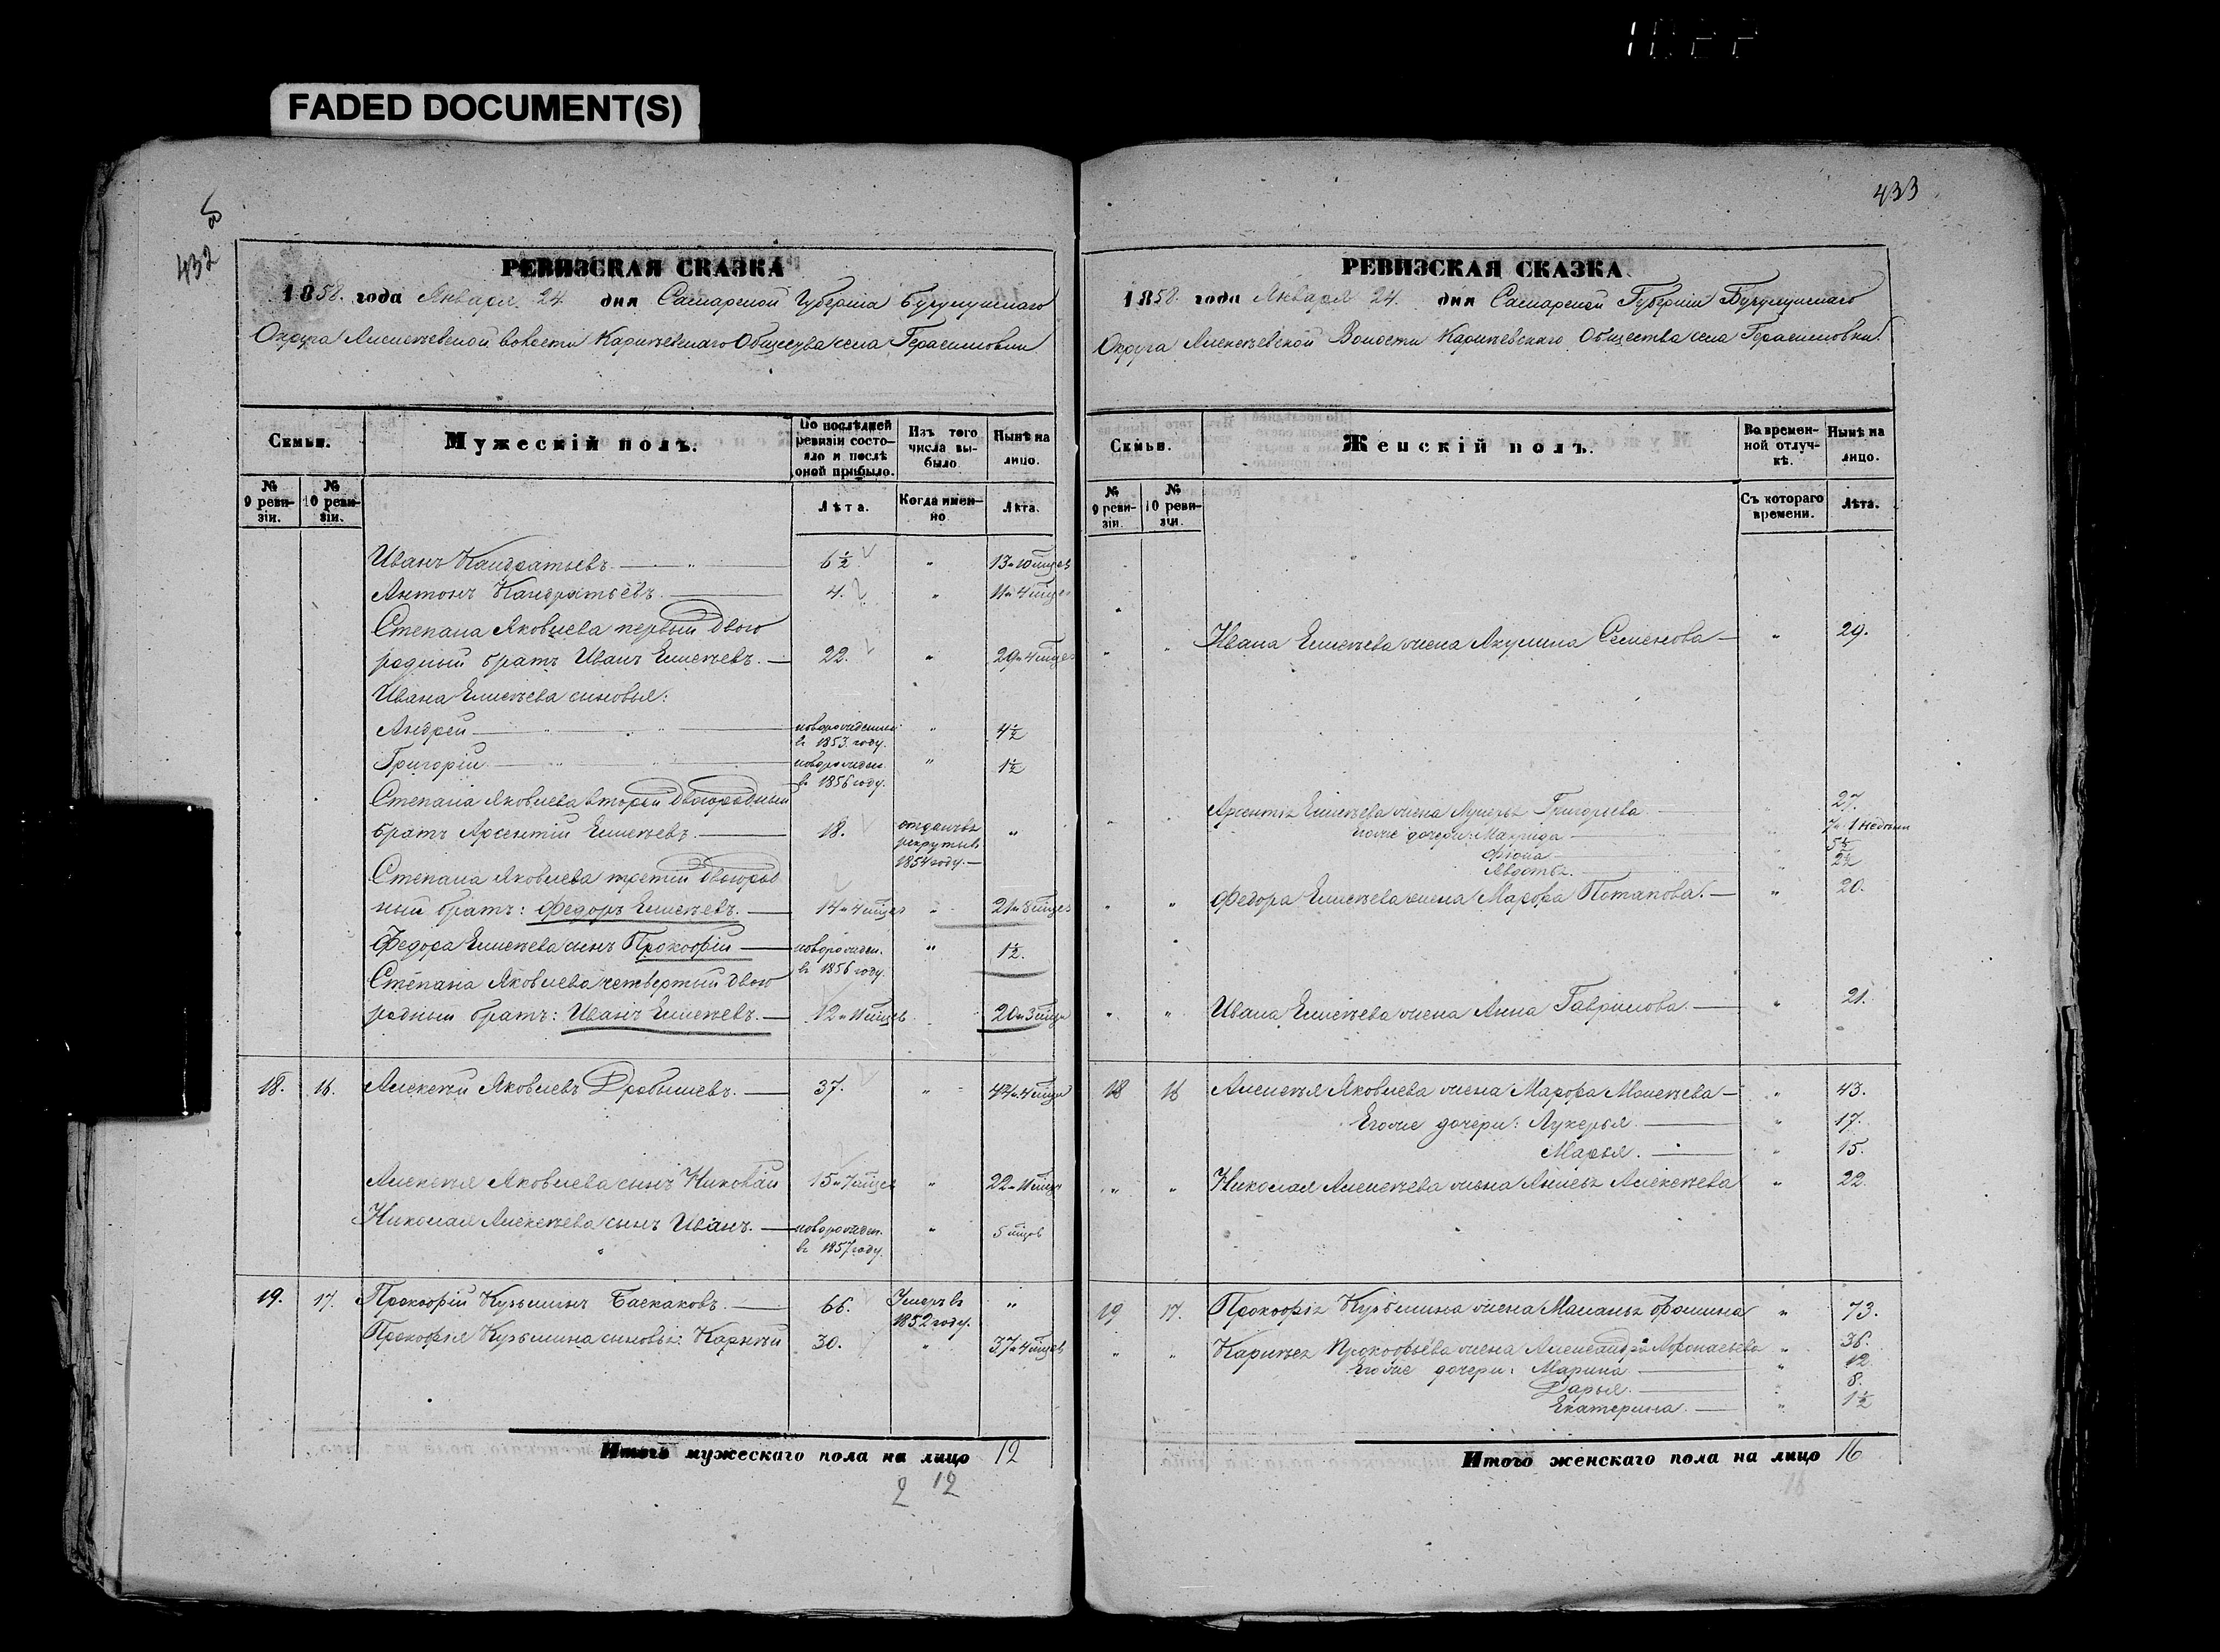 1022
FADED DOCUMENT(S)
432
РЕВИЗСКАЯ СКАЗКА
1858 года Января 24 дня Самарской Губерніи Бугурусланскаго
Округа Алексѣевской волости Каришевскаго Общества села Герасимовки
Семьи.
Мужескій полъ.
По послѣдней ревизіи состояло и послѣ оной прибыло.
Изъ того числа выбыло.
Нынѣ на лицо.
№ 9 ревизіи.
№ 10 ревизіи.
Лѣта.
Когда именно
Лѣта.
Иванъ Кандратьевъ 6½ " 13 и 10 мцев
Антонъ Кандратьевъ 4. " 11 и 4 мцев
Степана Яковлева первый двою
родный братъ Иванъ Елисѣевъ. 22. " 29 и 4 мцев
Ивана Елисѣева сыновья:
Андрей новорожденный в 1853 году. " 4½
Григорій новорожден. в 1856 году. " 1½
Степана Яковлева второй двоюродный
братъ Арсентій Елисѣевъ. 18. отданъ въ рекруты въ 1854 году. "
Степана Яковлева третій двоюрод
ный братъ: Федоръ Елисѣевъ. 14 и 4 мцев " 21 и 8 мцев
Федора Елисѣева сынъ Прокофій новорожден. в 1856 году. " 1½.
Степана Яковлева четвертый двою
родный братъ: Иванъ Елисѣевъ. 12 и 11 мцев 20 и 3 мцев
18. 16. Алексѣй Яковлевъ Дробышевъ. 37. " 44 и 4 мцев
Алексѣя Яковлева сынъ Николай 15 и 7 мцев " 22 и 11 мцев
Николая Алексѣева сынъ Иванъ. новорожден. в 1857 году. " 5 мцов
19. 17. Прокофій Кузьминъ Баскаковъ. 66. Умеръ въ 1852 году. "
Прокофія Кузьмина сыновья: Карнѣй 30. " 37 и 4 мцев
Итого мужескаго пола на лицо 12
2 12
433
РЕВИЗСКАЯ СКАЗКА
1858 года Января 24. дня Самарской Губерніи Бугурусланскаго
Округа Алексѣевской Волости Каришевскаго Общества села Герасимовки.
Семьи.
Женскій полъ.
Во временной отлучкѣ.
Нынѣ на лицо.
№ 9 ревизіи.
№ 10 ревизіи.
Съ котораго времени.
Лѣта.
" " Ивана Елисѣева жена Акулина Семенова " 29.
" " Арсентія Елисѣева жена Лукерья Григорьева " 27.
Егоже дочери: Макрида " 7 и 1 недѣли
Фіона " 5½
Авдотья. " 2½
" " Федора Елисѣева жена Марфа Потапова. " 20.
" " Ивана Елисѣева жена Анна Гаврилова. " 21.
18 16 Алексѣя Яковлева жена Марфа Моисѣева " 43.
Егоже дочери: Лукерья. " 17.
Марья. " 15.
" " Николая Алексѣева жена Алексѣева " 22.
19 17. Прокофія Кузьмина жена Маланья Фомина " 73.
" " Карнѣя Прокофьева жена Александра Афонасьева " 36.
Егоже дочери: Марина " 12
Дарья. " 8.
Екатерина. " 1½
Итого женскаго пола на лицо 16
16